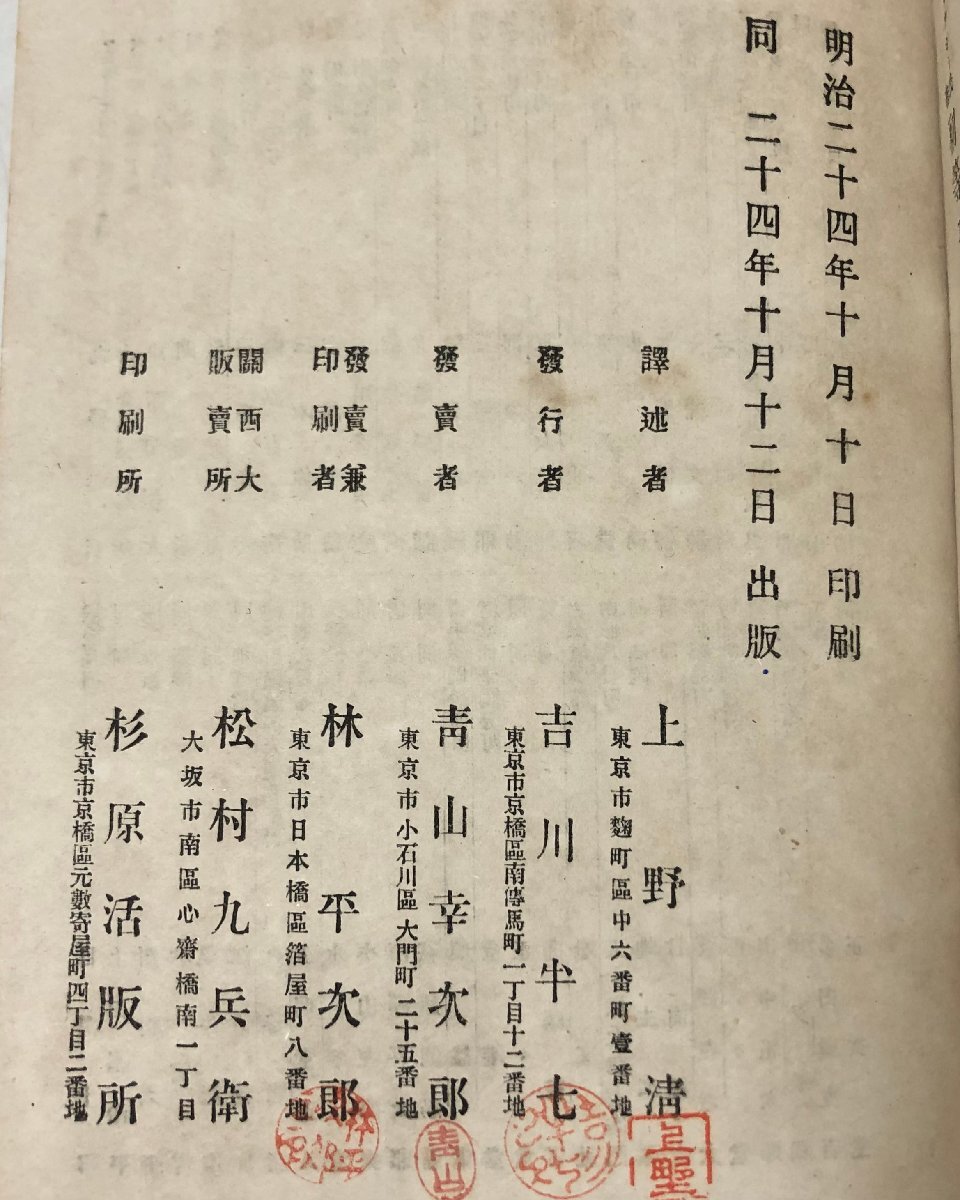 明治二十四年十月十日印刷
同 二十四年十月十二日出版
譯述者
上野清
東京市麴町區中六番町壹番地
發行者
吉川半七
東京市京橋區南傳馬町一丁目十二番地
發賣者
靑山幸次郎
東京市小石川區大門町二十五番地
發賣兼
印刷者
林平次郎
東京市日本橋區箔屋町八番地
關西大
販賣所
松村九兵衛
大坂市南區心齋橋南一丁目
印刷所
杉原活版所
東京市京橋區元數寄屋町四丁目二番地